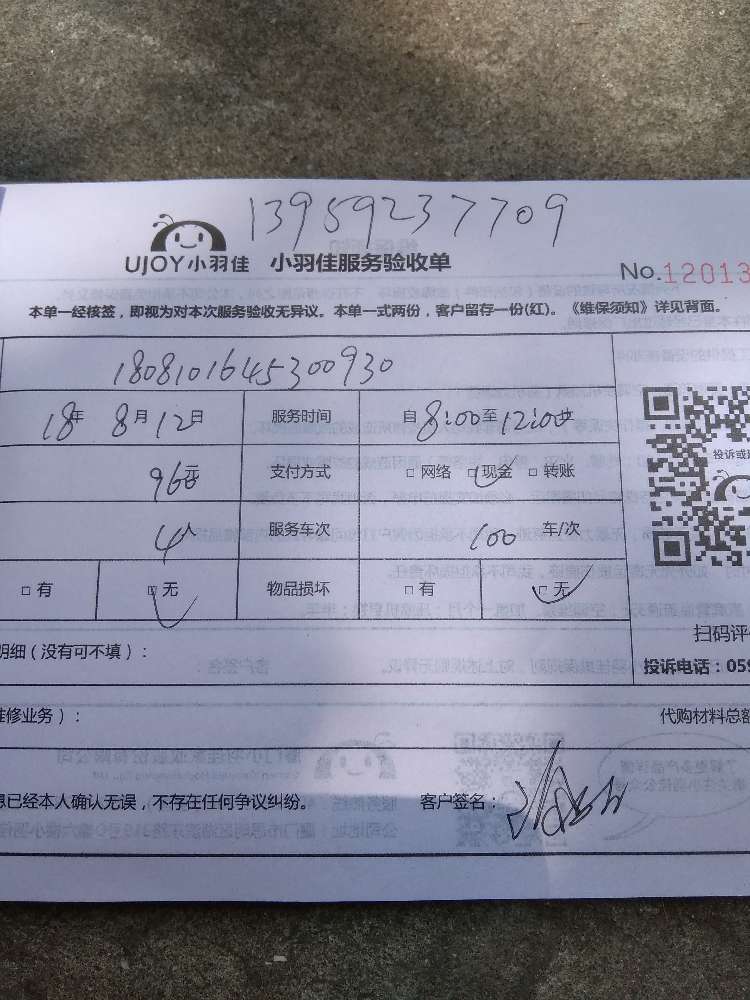 13959237709
UJOY小羽佳 小羽佳服务验收单 No.12013
本单一经核签，即视为对本次服务验收无异议。本单一式两份，客户留存一份(红)。《维保须知》详见背面。
1808101645300930
18年 8月12日 服务时间 自8:00至12:00止
960元 支付方式 □网络 □现金 □转账
4人 服务车次 100 车/次
□有 □无 物品损坏 □有 □无
投诉或
扫码评
明细（没有可不填）：
投诉电话：059
维修业务）：
代购材料总额
息已经本人确认无误，不存在任何争议纠纷。 客户签名：